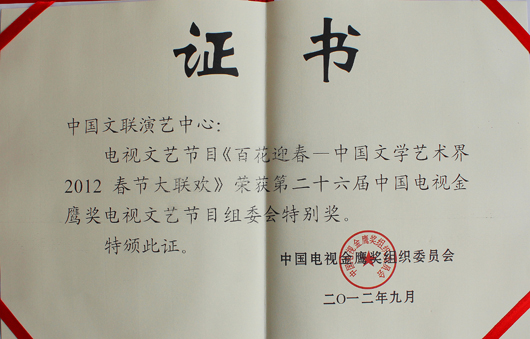 证书
中国文联演艺中心：
电视文艺节目《百花迎春—中国文学艺术界
2012 春节大联欢》荣获第二十六届中国电视金
鹰奖电视文艺节目组委会特别奖。
特颁此证。
中国电视金鹰奖组织委员会
二〇一二年九月